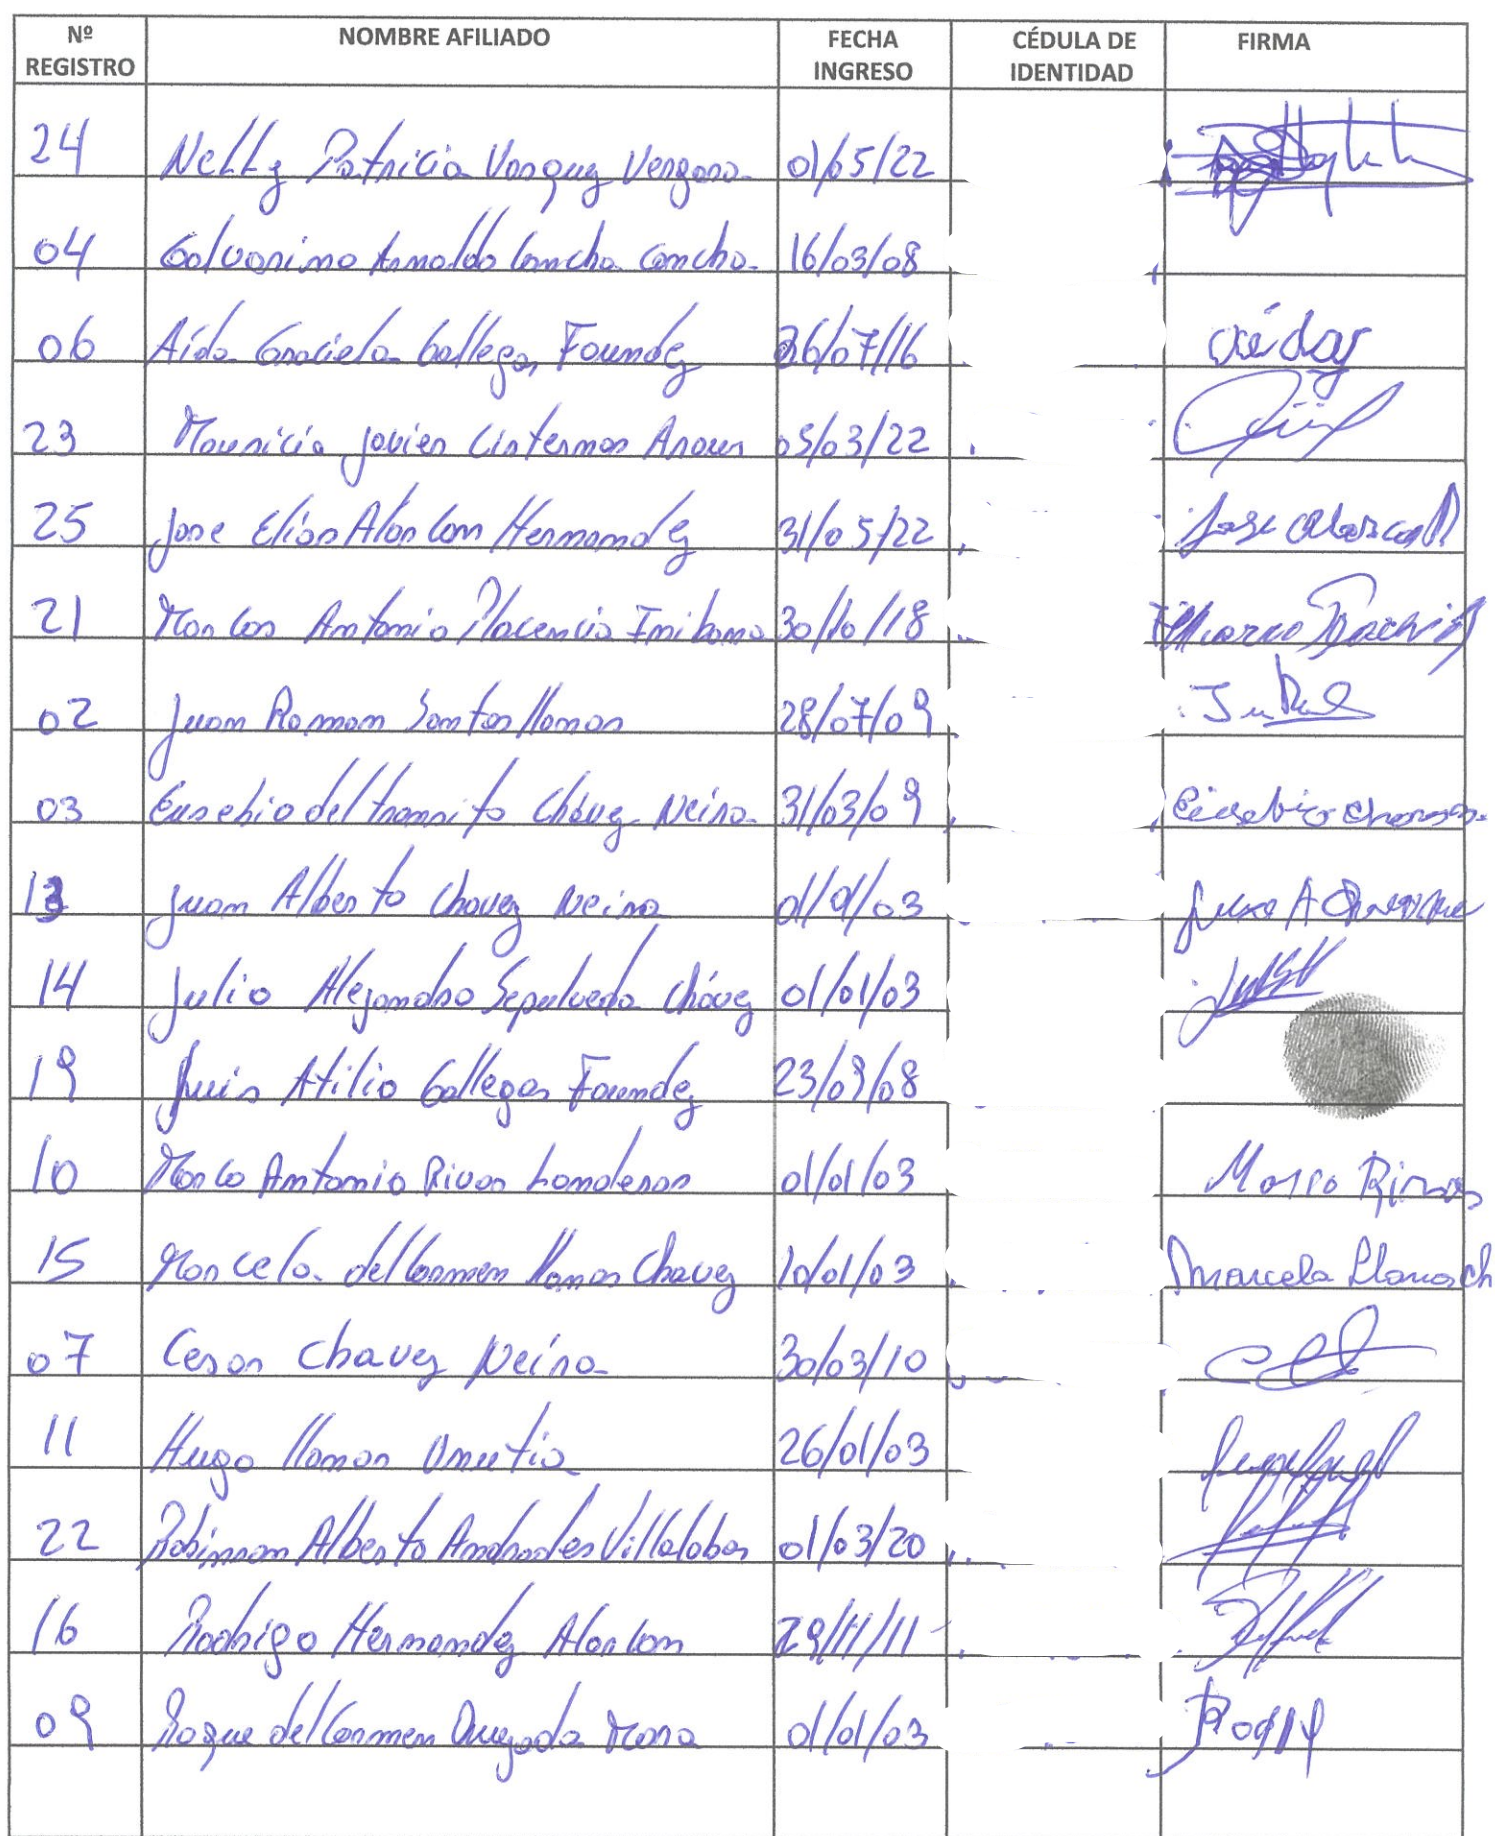 Nº REGISTRO NOMBRE AFILIADO FECHA INGRESO CÉDULA DE IDENTIDAD FIRMA
24 Nelly Patricia Vasquez Vergara 01/05/22
04 Galvarino Arnoldo Concha Concha 16/03/08
06 Aída Graciela Gallegos Faundez 26/07/16 aída g
23 Mauricio Javier Cisternas Araus 05/03/22
25 Jose Elias Alarcon Hernandez 31/05/22 Jose Alarcon
21 Marcos Antonio Placencia 30/10/18
02 Juan Ramon Santos llanos 28/07/09
03 Eusebio del transito Chávez Neira 31/03/09 Eusebio Chavez
13 Juan Alberto Chavez Neira 01/01/03 Juan A Chavez
14 Julio Alejandro Sepulveda Chávez 01/01/03
19 Luis Atilio Gallegos Faundez 23/09/08
10 Marco Antonio Rivas Landeros 01/01/03 Marco Rivas
15 Marcela del Carmen llanos Chavez 10/01/03 Marcela Llanos ch
07 Cesar Chavez Neira 30/03/10
11 Hugo llanos Urrutia 26/01/03
22 Robinson Alberto Andrades Villalobos 01/03/20
16 Rodrigo Hernandez Alarcon 29/11/11
09 Roque del Carmen Quezada Mora 01/01/03